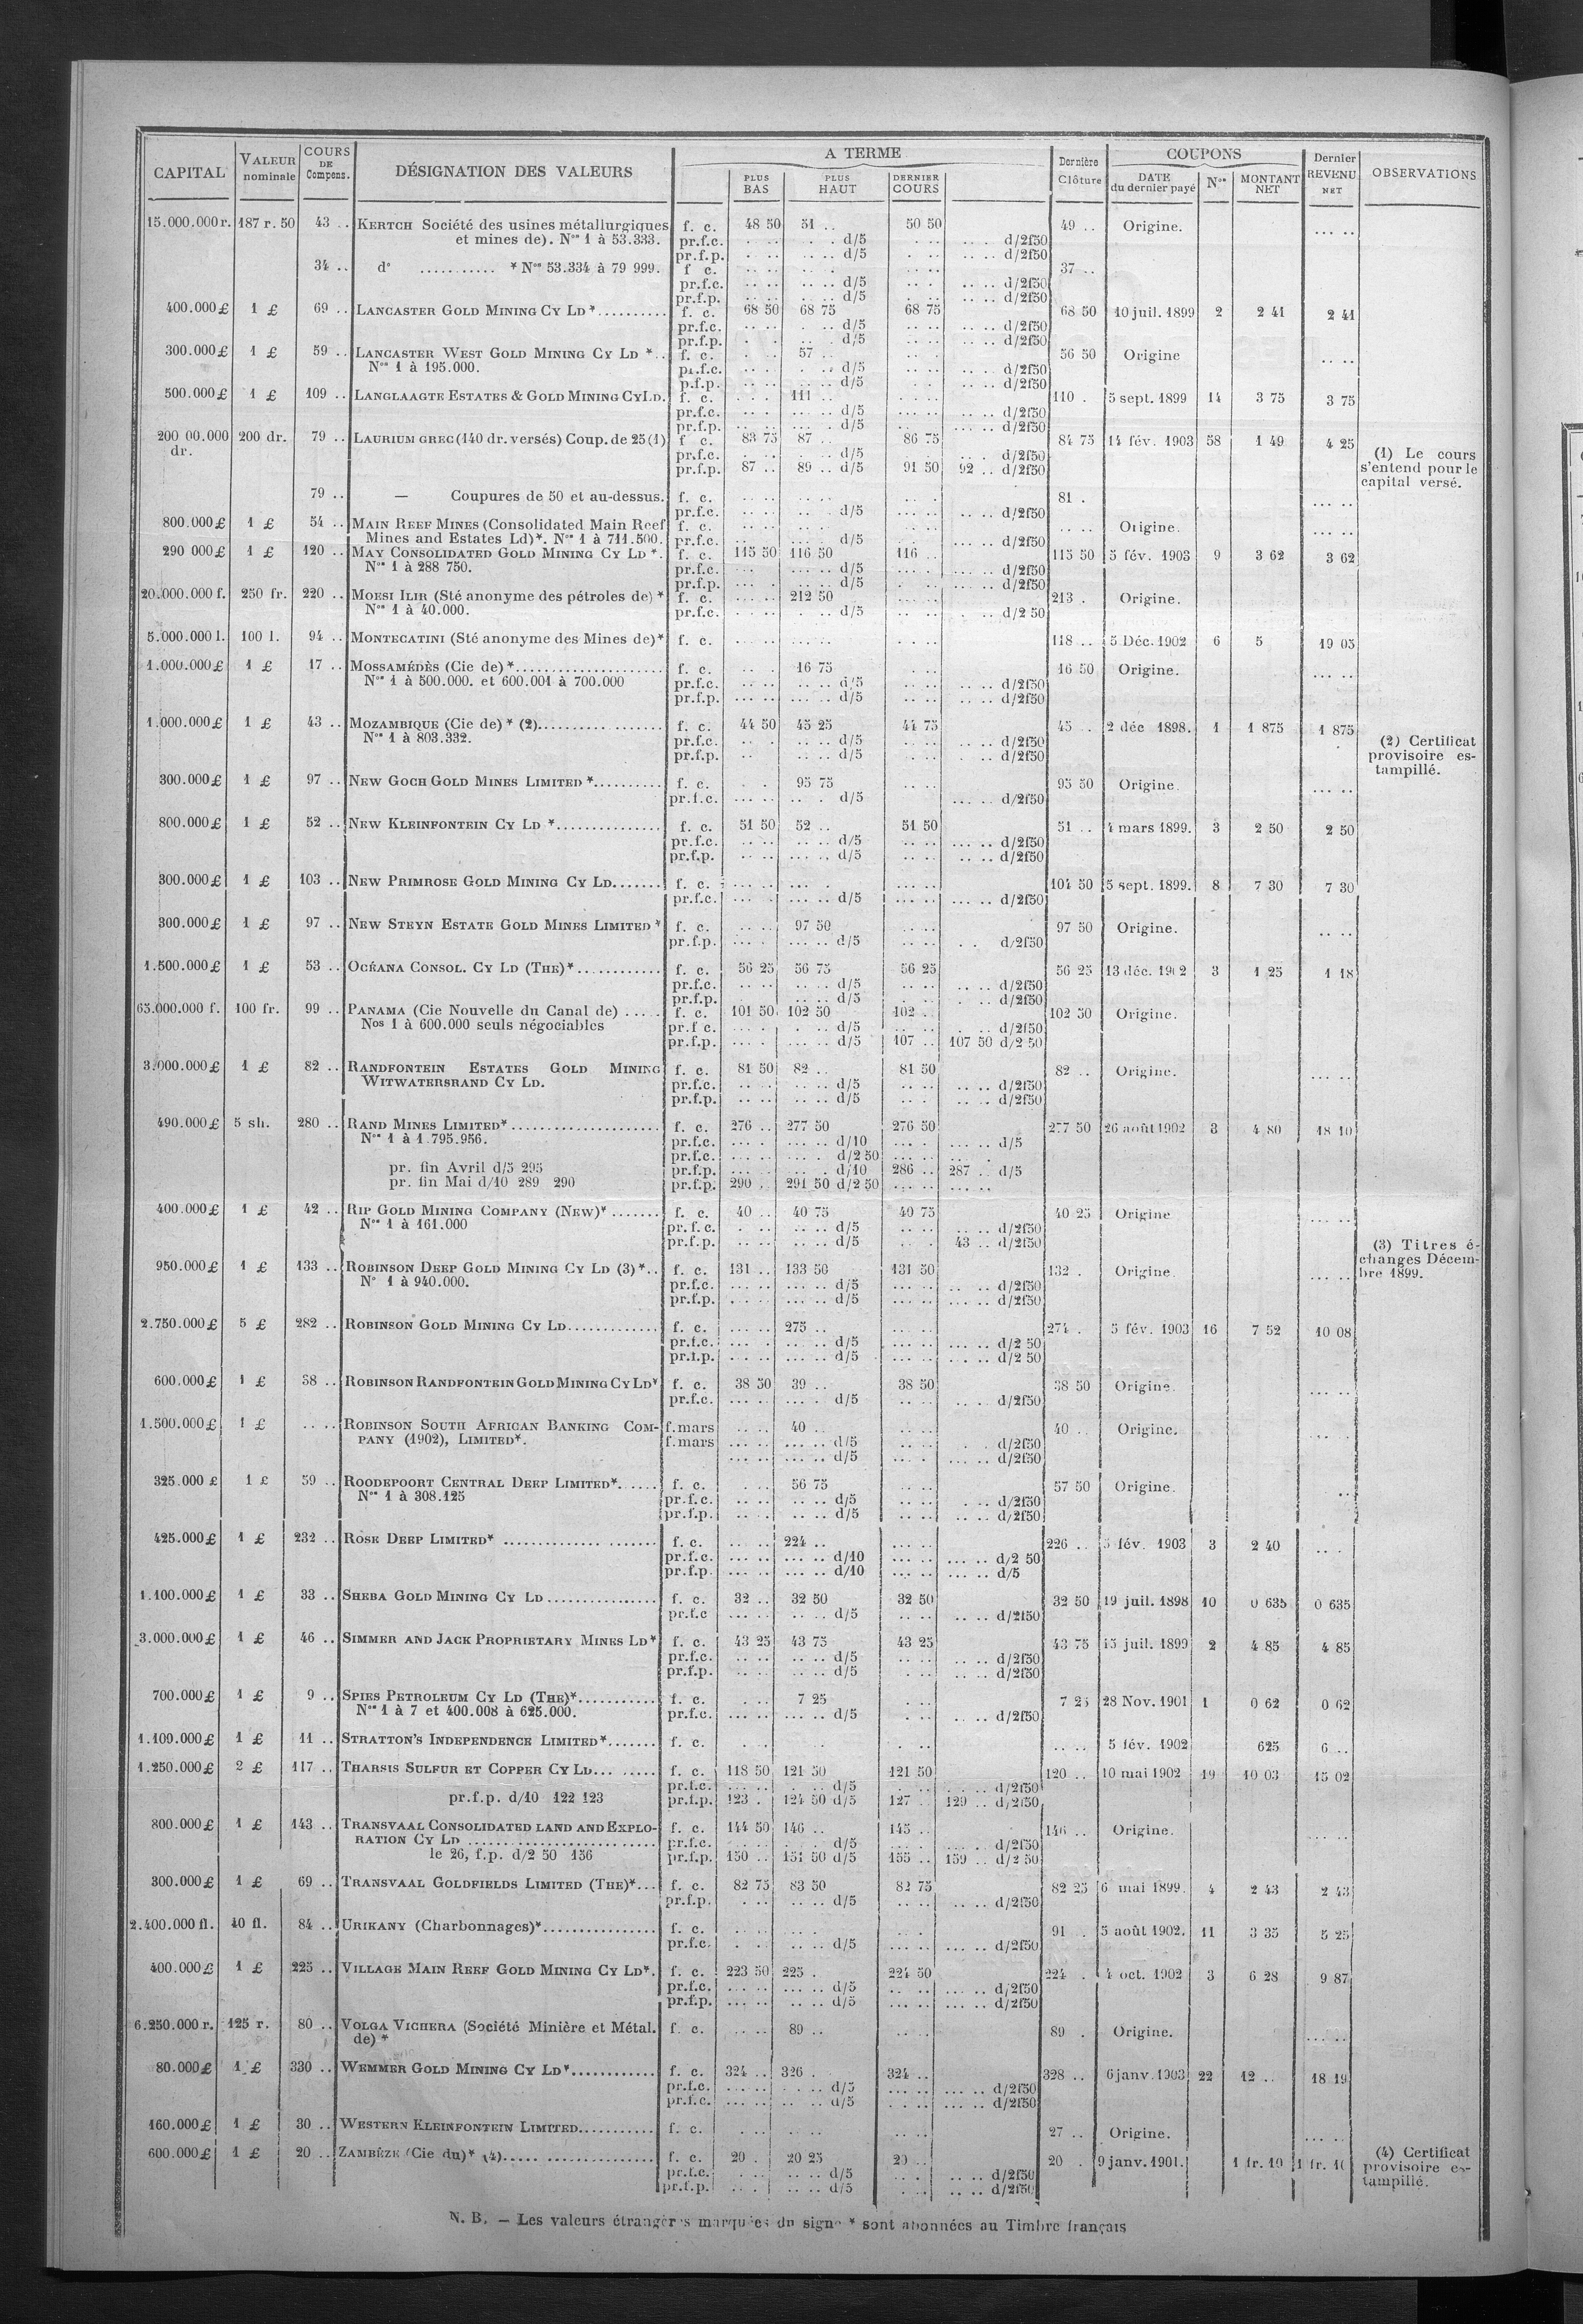 CAPITAL VALEUR nominale COURS DE Compens. DÉSIGNATION DES VALEURS A TERME PLUS BAS PLUS HAUT DERNIER COURS Dernière Clôture COUPONS DATE du dernier payé Nos MONTANT NET Dernier REVENU NET OBSERVATIONS
15.000.000 r. 187 r. 50 43 .. KERTCH Société des usines métallurgiques f. c. 48 50 51 .. 50 50 49 .. Origine. .. ..
et mines de). Nos 1 à 53.333. pr.f.c. d/5 d/2f50
pr.f.p. d/5 d/2f50
34 .. d° ........... * Nos 53.334 à 79 999. f c. 37 ..
pr.f.c. d/5 d/2f50
pr.f.p. d/5 d/2f50
400.000 £ 1 £ 69 .. LANCASTER GOLD MINING CY LD *.......... f. c. 68 50 68 75 68 75 68 50 10 juil. 1899 2 2 41 2 41
pr.f.c. d/5 d/2f50
pr.f.p. d/5 d/2f50
300.000 £ 1 £ 59 .. LANCASTER WEST GOLD MINING CY LD *.. f. c. 57 .. 56 50 Origine .. ..
Nos 1 à 195.000. pr.f.c. d/5 d/2f50
p.f.p. d/5 d/2f50
500.000 £ 1 £ 109 .. LANGLAAGTE ESTATES & GOLD MINING CY LD. f. c. 111 .. 110 . 5 sept. 1899 14 3 75 3 75
pr.f.c. d/5 d/2f50
pr.f.p. d/5 d/2f50
200 00.000 dr. 200 dr. 79 .. LAURIUM GREC (140 dr. versés) Coup. de 25 (1) f c. 83 75 87 .. 86 75 84 75 14 fév. 1903 58 1 49 4 25
pr.f.c. d/5 d/2f50
pr.f.p. 87 .. 89 .. d/5 91 50 92 .. d/2f50
(1) Le cours
s'entend pour le
capital versé.
79 .. — Coupures de 50 et au-dessus. f. c. 81 . .. ..
pr.f.c. d/5 d/2f50
800.000 £ 1 £ 54 .. MAIN REEF MINES (Consolidated Main Reef f. c. .. .. Origine. .. ..
Mines and Estates Ld)*. Nos 1 à 711.500. pr.f.c. d/5 d/2f50
290 000 £ 1 £ 120 .. MAY CONSOLIDATED GOLD MINING CY LD *. f. c. 115 50 116 50 116 .. 115 50 5 fév. 1903 9 3 62 3 62
Nos 1 à 288 750. pr.f.c. d/5 d/2f50
pr.f.p. d/5 d/2f50
20.000.000 f. 250 fr. 220 .. MOESI ILIR (Sté anonyme des pétroles de) * f. c. 212 50 213 . Origine.
Nos 1 à 40.000. pr.f.c. d/5 d/2 50
5.000.000 l. 100 l. 94 .. MONTECATINI (Sté anonyme des Mines de)* f. c. 118 .. 5 Déc. 1902 6 5 19 05
1.000.000 £ 1 £ 17 .. MOSSAMÉDÈS (Cie de) *..................... f. c. 16 75 16 50 Origine. .. ..
Nos 1 à 500.000. et 600.001 à 700.000 pr.f.c. d/5 d/2f50
pr.f.p. d/5 d/2f50
1.000.000 £ 1 £ 43 .. MOZAMBIQUE (Cie de) * (2)................. f. c. 44 50 45 25 44 75 45 .. 2 déc 1898. 1 1 875 1 875
Nos 1 à 803.332. pr.f.c. d/5 d/2f50
pr.f.p. d/5 d/2f50
(2) Certificat
provisoire es-
tampillé.
300.000 £ 1 £ 97 .. NEW GOCH GOLD MINES LIMITED *.......... f. c. 95 75 95 50 Origine. .. ..
pr.f.c. d/5 d/2f50
800.000 £ 1 £ 52 .. NEW KLEINFONTEIN CY LD *............... f. c. 51 50 52 .. 51 50 51 .. 4 mars 1899. 3 2 50 2 50
pr.f.c. d/5 d/2f50
pr.f.p. d/5 d/2f50
300.000 £ 1 £ 103 .. NEW PRIMROSE GOLD MINING CY LD....... f. c. 104 50 5 sept. 1899. 8 7 30 7 30
pr.f.c. d/5 d/2f50
300.000 £ 1 £ 97 .. NEW STEYN ESTATE GOLD MINES LIMITED * f. c. 97 50 97 50 Origine. .. ..
pr.f.p. d/5 d/2f50
1.500.000 £ 1 £ 53 .. OCÉANA CONSOL. CY LD (THE)*............ f. c. 56 25 56 75 56 25 56 25 13 déc. 1902 3 1 25 1 18
pr.f.c. d/5 d/2f50
pr.f.p. d/5 d/2f50
65.000.000 f. 100 fr. 99 .. PANAMA (Cie Nouvelle du Canal de) ..... f. c. 101 50 102 50 102 . 102 50 Origine.
Nos 1 à 600.000 seuls négociables pr.f c. d/5 d/2f50
pr.f.p. d/5 107 .. 107 50 d/2 50
3.000.000 £ 1 £ 82 .. RANDFONTEIN ESTATES GOLD MINING f. c. 81 50 82 .. 81 50 82 .. Origine. .. ..
WITWATERSRAND CY LD. pr.f.c. d/5 d/2f50
pr.f.p. d/5 d/2f50
490.000 £ 5 sh. 280 .. RAND MINES LIMITED*..................... f. c. 276 .. 277 50 276 50 277 50 26 août 1902 3 4 80 18 10
Nos 1 à 1.795.956. pr.f.c. d/10 d/5
pr.f.c. d/2 50
pr. fin Avril d/5 295 pr.f.p. d/10 286 .. 287 . d/5
pr. fin Mai d/10 289 290 pr.f.p. 290 .. 291 50 d/2 50
400.000 £ 1 £ 42 .. RIP GOLD MINING COMPANY (NEW)* ....... f. c. 40 .. 40 75 40 75 40 25 Origine .. ..
Nos 1 à 161.000 pr. f. c. d/5 d/2f50
pr.f.p. d/5 43 .. d/2f50
(3) Titres é-
changes Décem-
bre 1899.
950.000 £ 1 £ 133 .. ROBINSON DEEP GOLD MINING CY LD (3)*.. f. c. 131 .. 133 50 131 50 132 . Origine. .. ..
N° 1 à 940.000. pr.f.c. d/5 d/2f50
pr.f.p. d/5 d/2f50
2.750.000 £ 5 £ 282 .. ROBINSON GOLD MINING CY LD............. f. c. 275 .. 274 . 5 fév. 1903 16 7 52 10 08
pr.f.c. d/5 d/2 50
pr.f.p. d/5 d/2 50
600.000 £ 1 £ 38 .. ROBINSON RANDFONTEIN GOLD MINING CY LD* f. c. 38 50 39 .. 38 50 38 50 Origine. .. ..
pr.f.c. d/5 d/2f50
1.500.000 £ 1 £ .. .. ROBINSON SOUTH AFRICAN BANKING COM- f.mars 40 .. 40 .. Origine.
PANY (1902), LIMITED*. f.mars d/5 d/2f50
d/5 d/2f50
325.000 £ 1 £ 59 .. ROODEPOORT CENTRAL DEEP LIMITED*...... f. c. 56 75 57 50 Origine.
Nos 1 à 308.125 pr.f.c. d/5 d/2f50
pr.f.p. d/5 d/2f50
425.000 £ 1 £ 232 .. ROSE DEEP LIMITED* .............. ....... f. c. 224 .. 226 .. 5 fév. 1903 3 2 40
pr.f.c. d/10 d/2 50
pr.f.p. d/10 d/5
1.100.000 £ 1 £ 33 .. SHEBA GOLD MINING CY LD ................ f. c. 32 .. 32 50 32 50 32 50 19 juil. 1898 10 0 635 0 635
pr.f.c d/5 d/2f50
3.000.000 £ 1 £ 46 .. SIMMER AND JACK PROPRIETARY MINES LD* f. c. 43 25 43 75 43 25 43 75 15 juil. 1899 2 4 85 4 85
pr.f.c. d/5 d/2f50
pr.f.p. d/5 d/2f50
700.000 £ 1 £ 9 .. SPIES PETROLEUM CY LD (THE)*........... f. c. 7 25 7 25 28 Nov. 1901 1 0 62 0 62
Nos 1 à 7 et 400.008 à 625.000. pr.f.c. d/5 d/2f50
1.100.000 £ 1 £ 11 .. STRATTON'S INDEPENDENCE LIMITED*....... f. c. .. .. 5 fév. 1902 625 6 ..
1.250.000 £ 2 £ 117 .. THARSIS SULFUR ET COPPER CY LD... ..... f. c. 118 50 121 50 121 50 120 .. 10 mai 1902 19 10 03 15 02
pr.f.c. d/5 d/2f50
pr.f.p. d/10 122 123 pr.f.p. 123 . 124 50 d/5 127 .. 129 .. d/2f50
800.000 £ 1 £ 143 .. TRANSVAAL CONSOLIDATED LAND AND EXPLO- f. c. 144 50 146 .. 145 .. 146 .. Origine. .. ..
RATION CY LD ............................ pr.f.c. d/5 d/2f50
le 26, f.p. d/2 50 156 pr.f.p. 150 .. 151 50 d/5 155 .. 159 .. d/2 50
300.000 £ 1 £ 69 .. TRANSVAAL GOLDFIELDS LIMITED (THE)*... f. c. 82 75 83 50 82 75 82 25 6 mai 1899. 4 2 43 2 43
pr.f.p. d/5 d/2f50
2.400.000 fl. 40 fl. 84 .. URIKANY (Charbonnages)*................ f. c. 91 . 5 août 1902. 11 3 35 5 25
pr.f.c. d/5 d/2f50
400.000 £ 1 £ 225 .. VILLAGE MAIN REEF GOLD MINING CY LD*. f. c. 223 50 225 . 224 50 224 . 4 oct. 1902 3 6 28 9 87
pr.f.c. d/5 d/2f50
pr.f.p. d/5 d/2f50
6.250.000 r. 125 r. 80 .. VOLGA VICHERA (Société Minière et Métal. f. c. 89 .. 89 . Origine. .. ..
de) *
80.000 £ 1 £ 330 .. WEMMER GOLD MINING CY LD*............ f. c. 324 .. 326 . 324 .. 328 .. 6 janv. 1903 22 12 .. 18 19
pr.f.c. d/5 d/2f50
pr.f.c. d/5 d/2f50
160.000 £ 1 £ 30 .. WESTERN KLEINFONTEIN LIMITED........... f. c. 27 .. Origine. .. ..
600.000 £ 1 £ 20 .. ZAMBÈZE (Cie du)* (4)..... ................ f. c. 20 . 20 25 20 .. 20 . 9 janv. 1901. 1 fr. 10
pr.f.c. d/5 d/2f50
pr.f.p. d/5 d/2f50
(4) Certificat
provisoire es-
tampillé.
N. B. — Les valeurs étrangères marquées du signe * sont abonnées au Timbre français